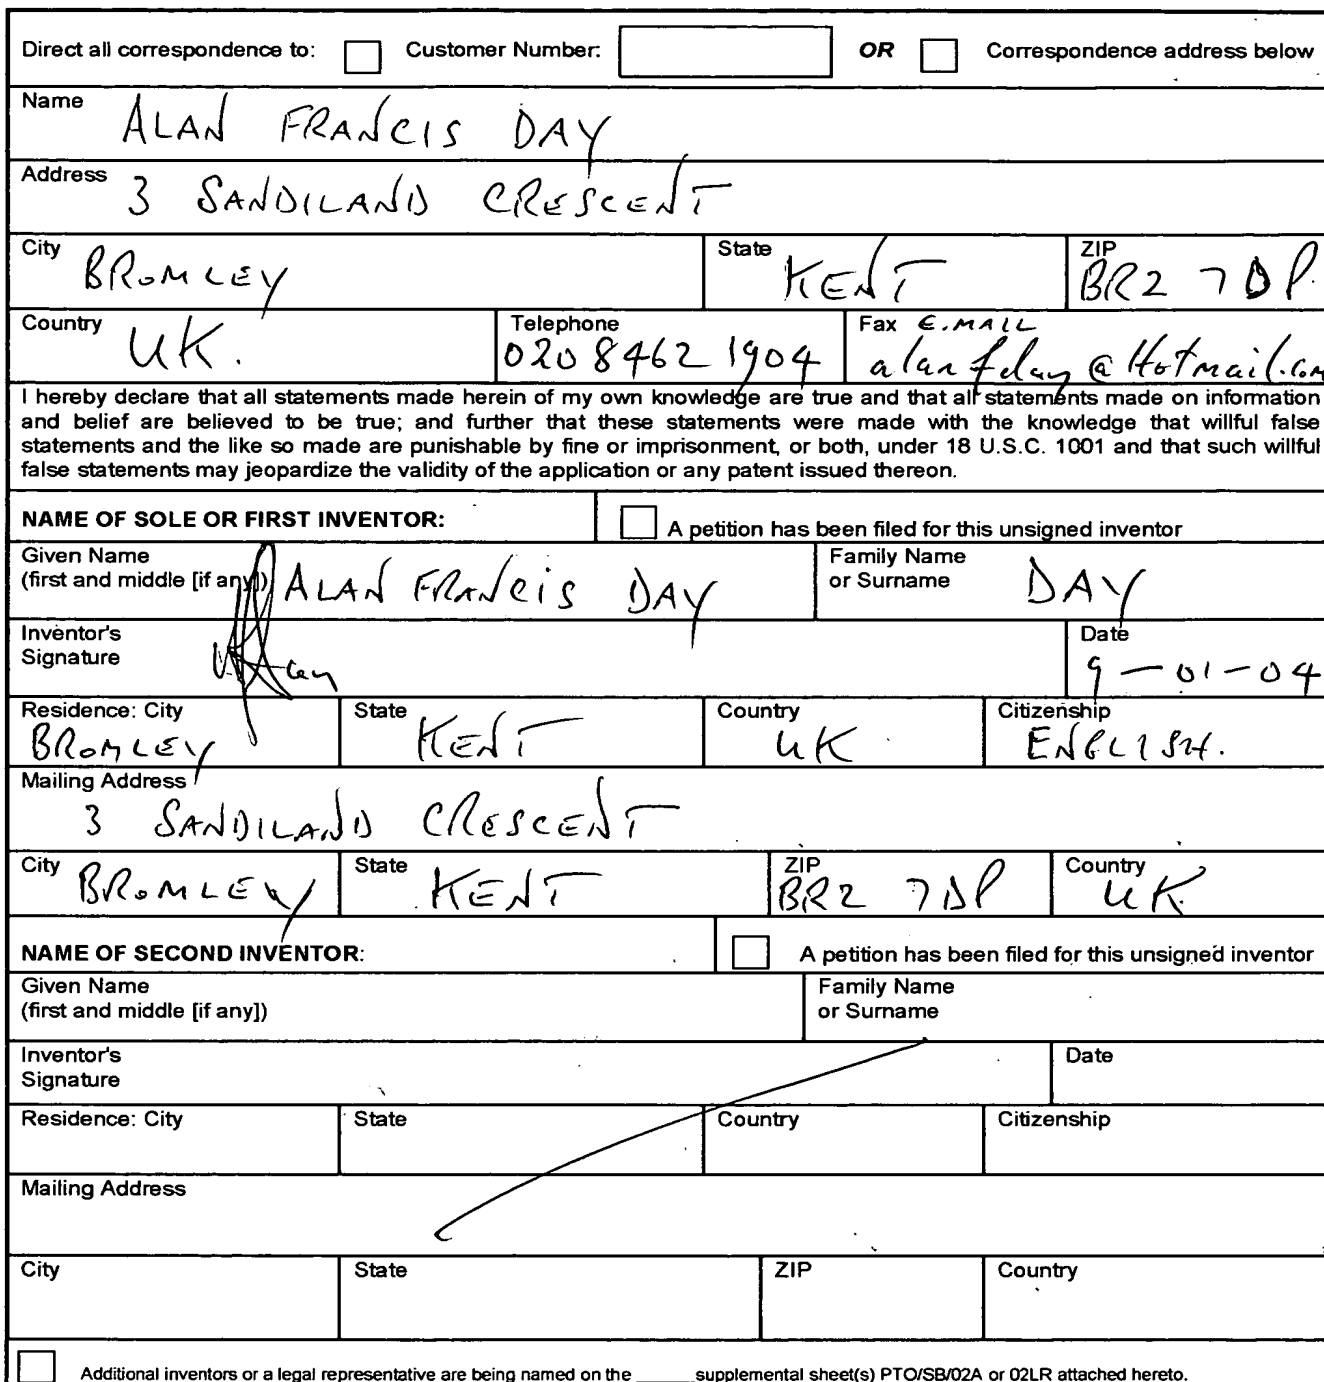 Direct all correspondence to: Customer Number: OR Correspondence address below
Name ALAN FRANCIS DAY
Address 3 SANDILAND CRESCENT
City BROMLEY State KENT ZIP BR2 7DP.
Country UK. Telephone 020 8462 1904 Fax E.MAIL alanfday@Hotmail.com
I hereby declare that all statements made herein of my own knowledge are true and that all statements made on information
and belief are believed to be true; and further that these statements were made with the knowledge that willful false
statements and the like so made are punishable by fine or imprisonment, or both, under 18 U.S.C. 1001 and that such willful
false statements may jeopardize the validity of the application or any patent issued thereon.
NAME OF SOLE OR FIRST INVENTOR: A petition has been filed for this unsigned inventor
Given Name Family Name
(first and middle [if any]) ALAN FRANCIS DAY or Surname DAY
Inventor's Date
Signature 9-01-04
Residence: City State Country Citizenship
BROMLEY KENT UK. ENGLISH.
Mailing Address
3 SANDILAND CRESCENT
City BROMLEY State KENT ZIP BR2 7DP Country UK
NAME OF SECOND INVENTOR: A petition has been filed for this unsigned inventor
Given Name Family Name
(first and middle [if any]) or Surname
Inventor's Date
Signature
Residence: City State Country Citizenship
Mailing Address
City State ZIP Country
Additional inventors or a legal representative are being named on the ______ supplemental sheet(s) PTO/SB/02A or 02LR attached hereto.